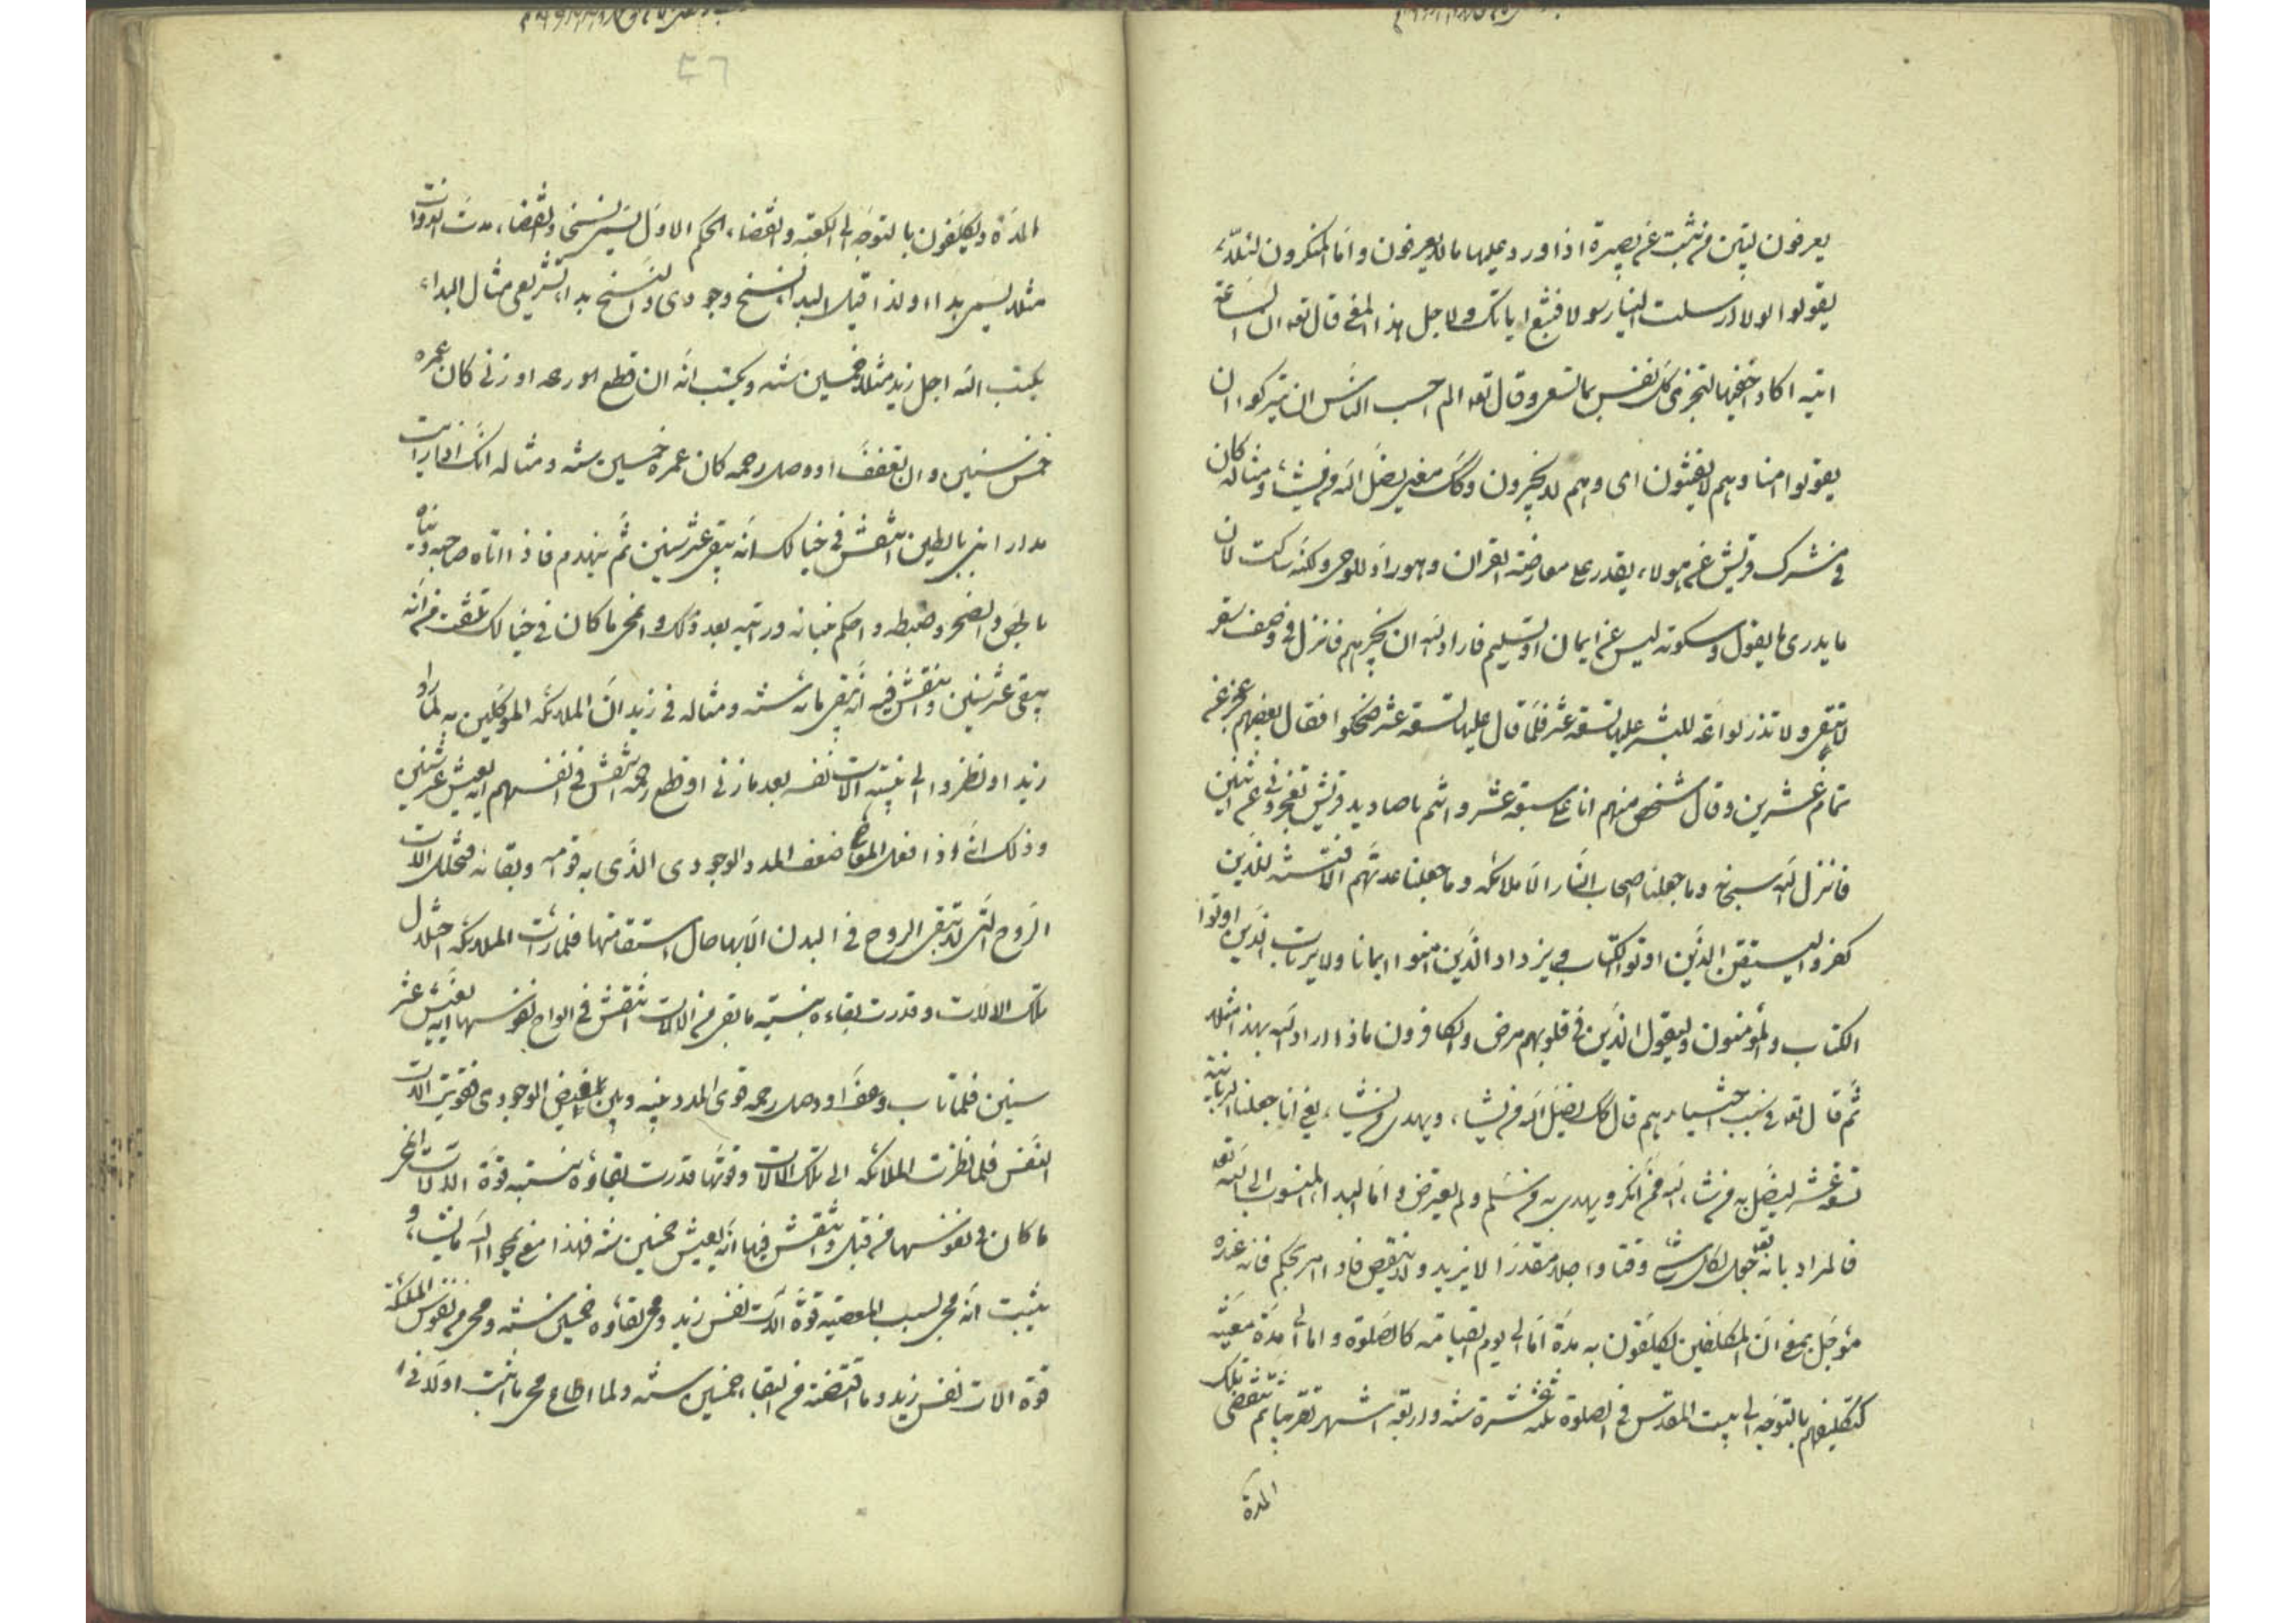 يعرفون يتبين من يثبت عن بصيرة اذا ورد عليها ما لا يعرفون واما المنكرون لئلا
يقولوا لولا ارسلت الينا رسولا فنتبع اياتك ولاجل هذا المعنى قال تعه ان الساعة
اتية اكاد اخفيها لتجزى كل نفس بما تسعى وقال تعه الم احسب الناس ان يتركوا ان
يقولوا امنا وهم لا يفتنون اى وهم لا يختبرون وكك معنى يضل الله من يشاء ومثاله كان
فى مشرك قريش من هولاء يقدر على معارضة القران وهو راد للوحى ولكنه ساكت لان
ما يدرى ما يقول وسكوته ليس عن ايمان او تسليم فاراد الله ان يختبرهم فانزل فى وصف سقر
لا تبقى ولا تذر لواحة للبشر عليها تسعة عشر فلما قال عليها تسعة عشر ضحكوا فقال بعضهم عجز عن
تمام عشرين وقال شخص منهم انا على سبعة عشر وانتم يا صناديد قريش تعجزونى عن اثنين
فانزل الله سبحنه وما جعلنا اصحاب النار الا ملائكة وما جعلنا عدتهم الا فتنة للذين
كفروا ليستيقن الذين اوتوا الكتاب ويزداد الذين امنوا ايمانا ولا يرتاب الذين اوتوا
الكتاب والمؤمنون وليقول الذين فى قلوبهم مرض والكافرون ماذا اراد الله بهذا مثلا
ثم قال تعه فى سبب اختبارهم قال كك يضل الله من يشاء ويهدى من يشاء يعنى انا جعلنا الزبانية
تسعة عشر ليضل به من شاء الله ممن انكر ويهدى به من سلم ولم يعترض واما البداء المنسوب الى الله تعه
فالمراد بانه تعه جعل لكل شىء وقتا واجلا مقدرا لا يزيد ولا ينقص فاذا امر بحكم فانه عنده
مؤجل بمعنى ان المكلفين يكلفون به مدة اما الى يوم القيامة كالصلوة واما الى مدة معينة
كتكليفهم بالتوجه الى بيت المقدس فى الصلوة ثلثة عشرة سنة واربعة اشهر تقريبا ثم تنقضى تلك
المدة
٤٦
المدة ويكلفون بالتوجه الى الكعبة وانقضاء الحكم الاول يسمى نسخا وانقضاء مدت الذوات
مثلا يسمى بداء ولذا قيل البداء نسخ وجودى والنسخ بداء تشريعى مثال البداء
يكتب الله اجل زيد مثلا خمسين سنة ويكتب انه ان قطع رحمه او زنى كان عمره
خمس سنين وان تعفف او وصل رحمه كان عمره خمسين سنة ومثاله انك اذا رايت
جدار ابنى بالطين انتقش فى خيالك انه يبقى عشر سنين ثم ينهدم فاذا اتاه صاحبه وبناه
بالجص والصخر وضبطه واحكم بنيانه ورايته بعد ذلك وانمحى ما كان فى خيالك من انه
يبقى عشر سنين وانتقش فيه انه يبقى مائة سنة ومثاله فى زيد ان الملائكة الموكلين به لما راو
زيد او نظروا الى بنية الات نفسه بعد ما زنى او قطع رحمه انتقش فى انفسهم انه يعيش عشر سنين
وذلك انه اذا فعل المعاصى ضعف المدد الوجودى الذى به قوامه وبقائه فتختل الات
الروح التى لا تبقى الروح فى البدن الا بها حال استقامتها فلما رات الملائكة اختلال
تلك الالات وقدرت بقاءه بنسبة ما بقى من الالات انتقش فى الواح نفوسها انه يعيش عشر
سنين فلما تاب وعف او وصل رحمه قوى المدد فيه وبين الفيض الوجودى فقويت الات
النفس فلما نظرت الملائكة الى تلك الالات وقوتها قدرت بقاؤه بنسبة قوة الالات انمحى
ما كان فى نفوسها من قبل وانتقش فيها انه يعيش خمسين سنة فهذا معنى يمحوا الله ما يشاء و
يثبت انه محى بسبب المعصية قوة الات نفس زيد ومحى بقاؤه خمسين سنة ومحى من نفوس الملائكة
قوة الات نفس زيد وما اقتضته من البقاء خمسين سنة ولما اطاع محى ما اثبت اولا فى